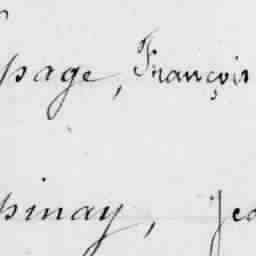 page, François
pinay, Jea